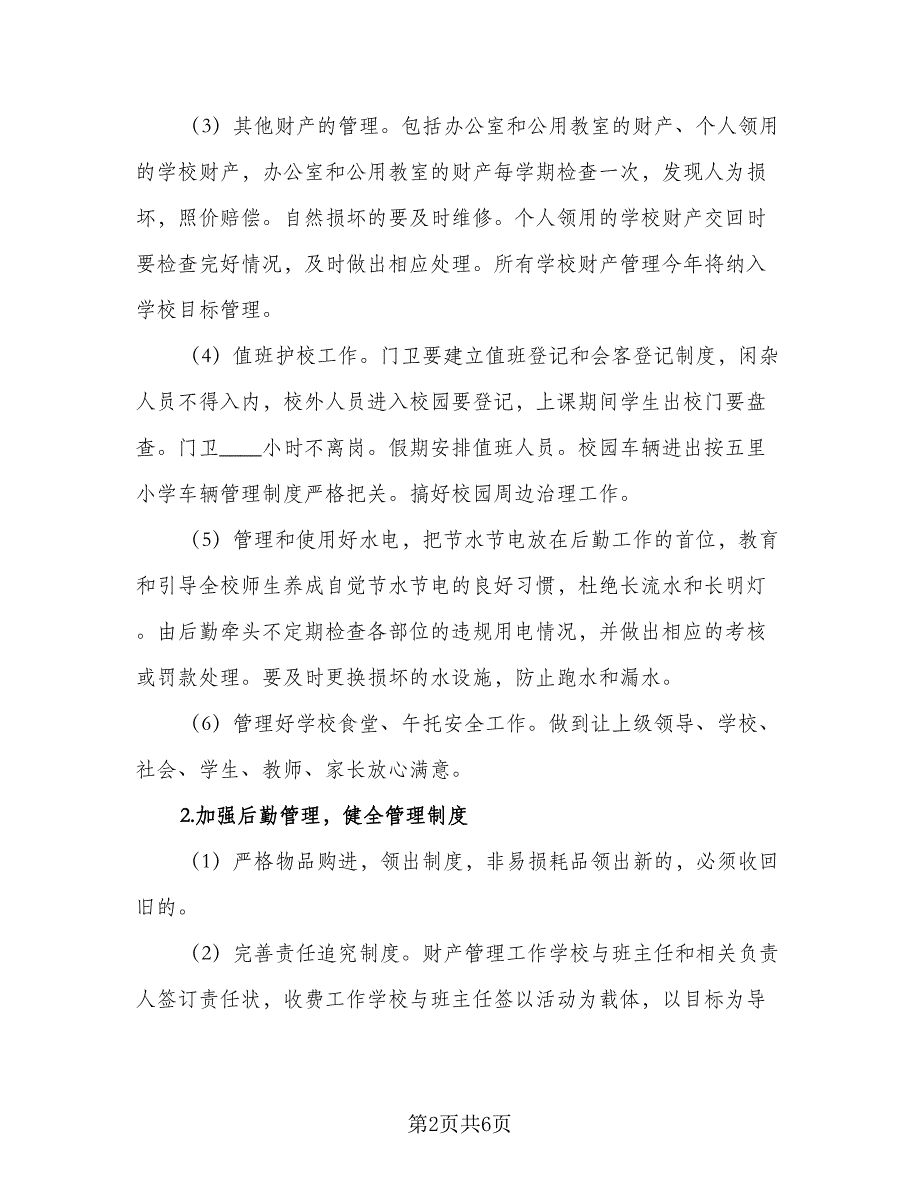 （3）其他财产的管理。包括办公室和公用教室的财产、个人领用
的学校财产，办公室和公用教室的财产每学期检查一次，发现人为损
坏，照价赔偿。自然损坏的要及时维修。个人领用的学校财产交回时
要检查完好情况，及时做出相应处理。所有学校财产管理今年将纳入
学校目标管理。
（4）值班护校工作。门卫要建立值班登记和会客登记制度，闲杂
人员不得入内，校外人员进入校园要登记，上课期间学生出校门要盘
查。门卫____小时不离岗。假期安排值班人员。校园车辆进出按五里
小学车辆管理制度严格把关。搞好校园周边治理工作。
（5）管理和使用好水电，把节水节电放在后勤工作的首位，教育
和引导全校师生养成自觉节水节电的良好习惯，杜绝长流水和长明灯
。由后勤牵头不定期检查各部位的违规用电情况，并做出相应的考核
或罚款处理。要及时更换损坏的水设施，防止跑水和漏水。
（6）管理好学校食堂、午托安全工作。做到让上级领导、学校、
社会、学生、教师、家长放心满意。
2.加强后勤管理，健全管理制度
（1）严格物品购进，领出制度，非易损耗品领出新的，必须收回
旧的。
（2）完善责任追究制度。财产管理工作学校与班主任和相关负责
人签订责任状，收费工作学校与班主任签以活动为载体，以目标为导
第2页共6页